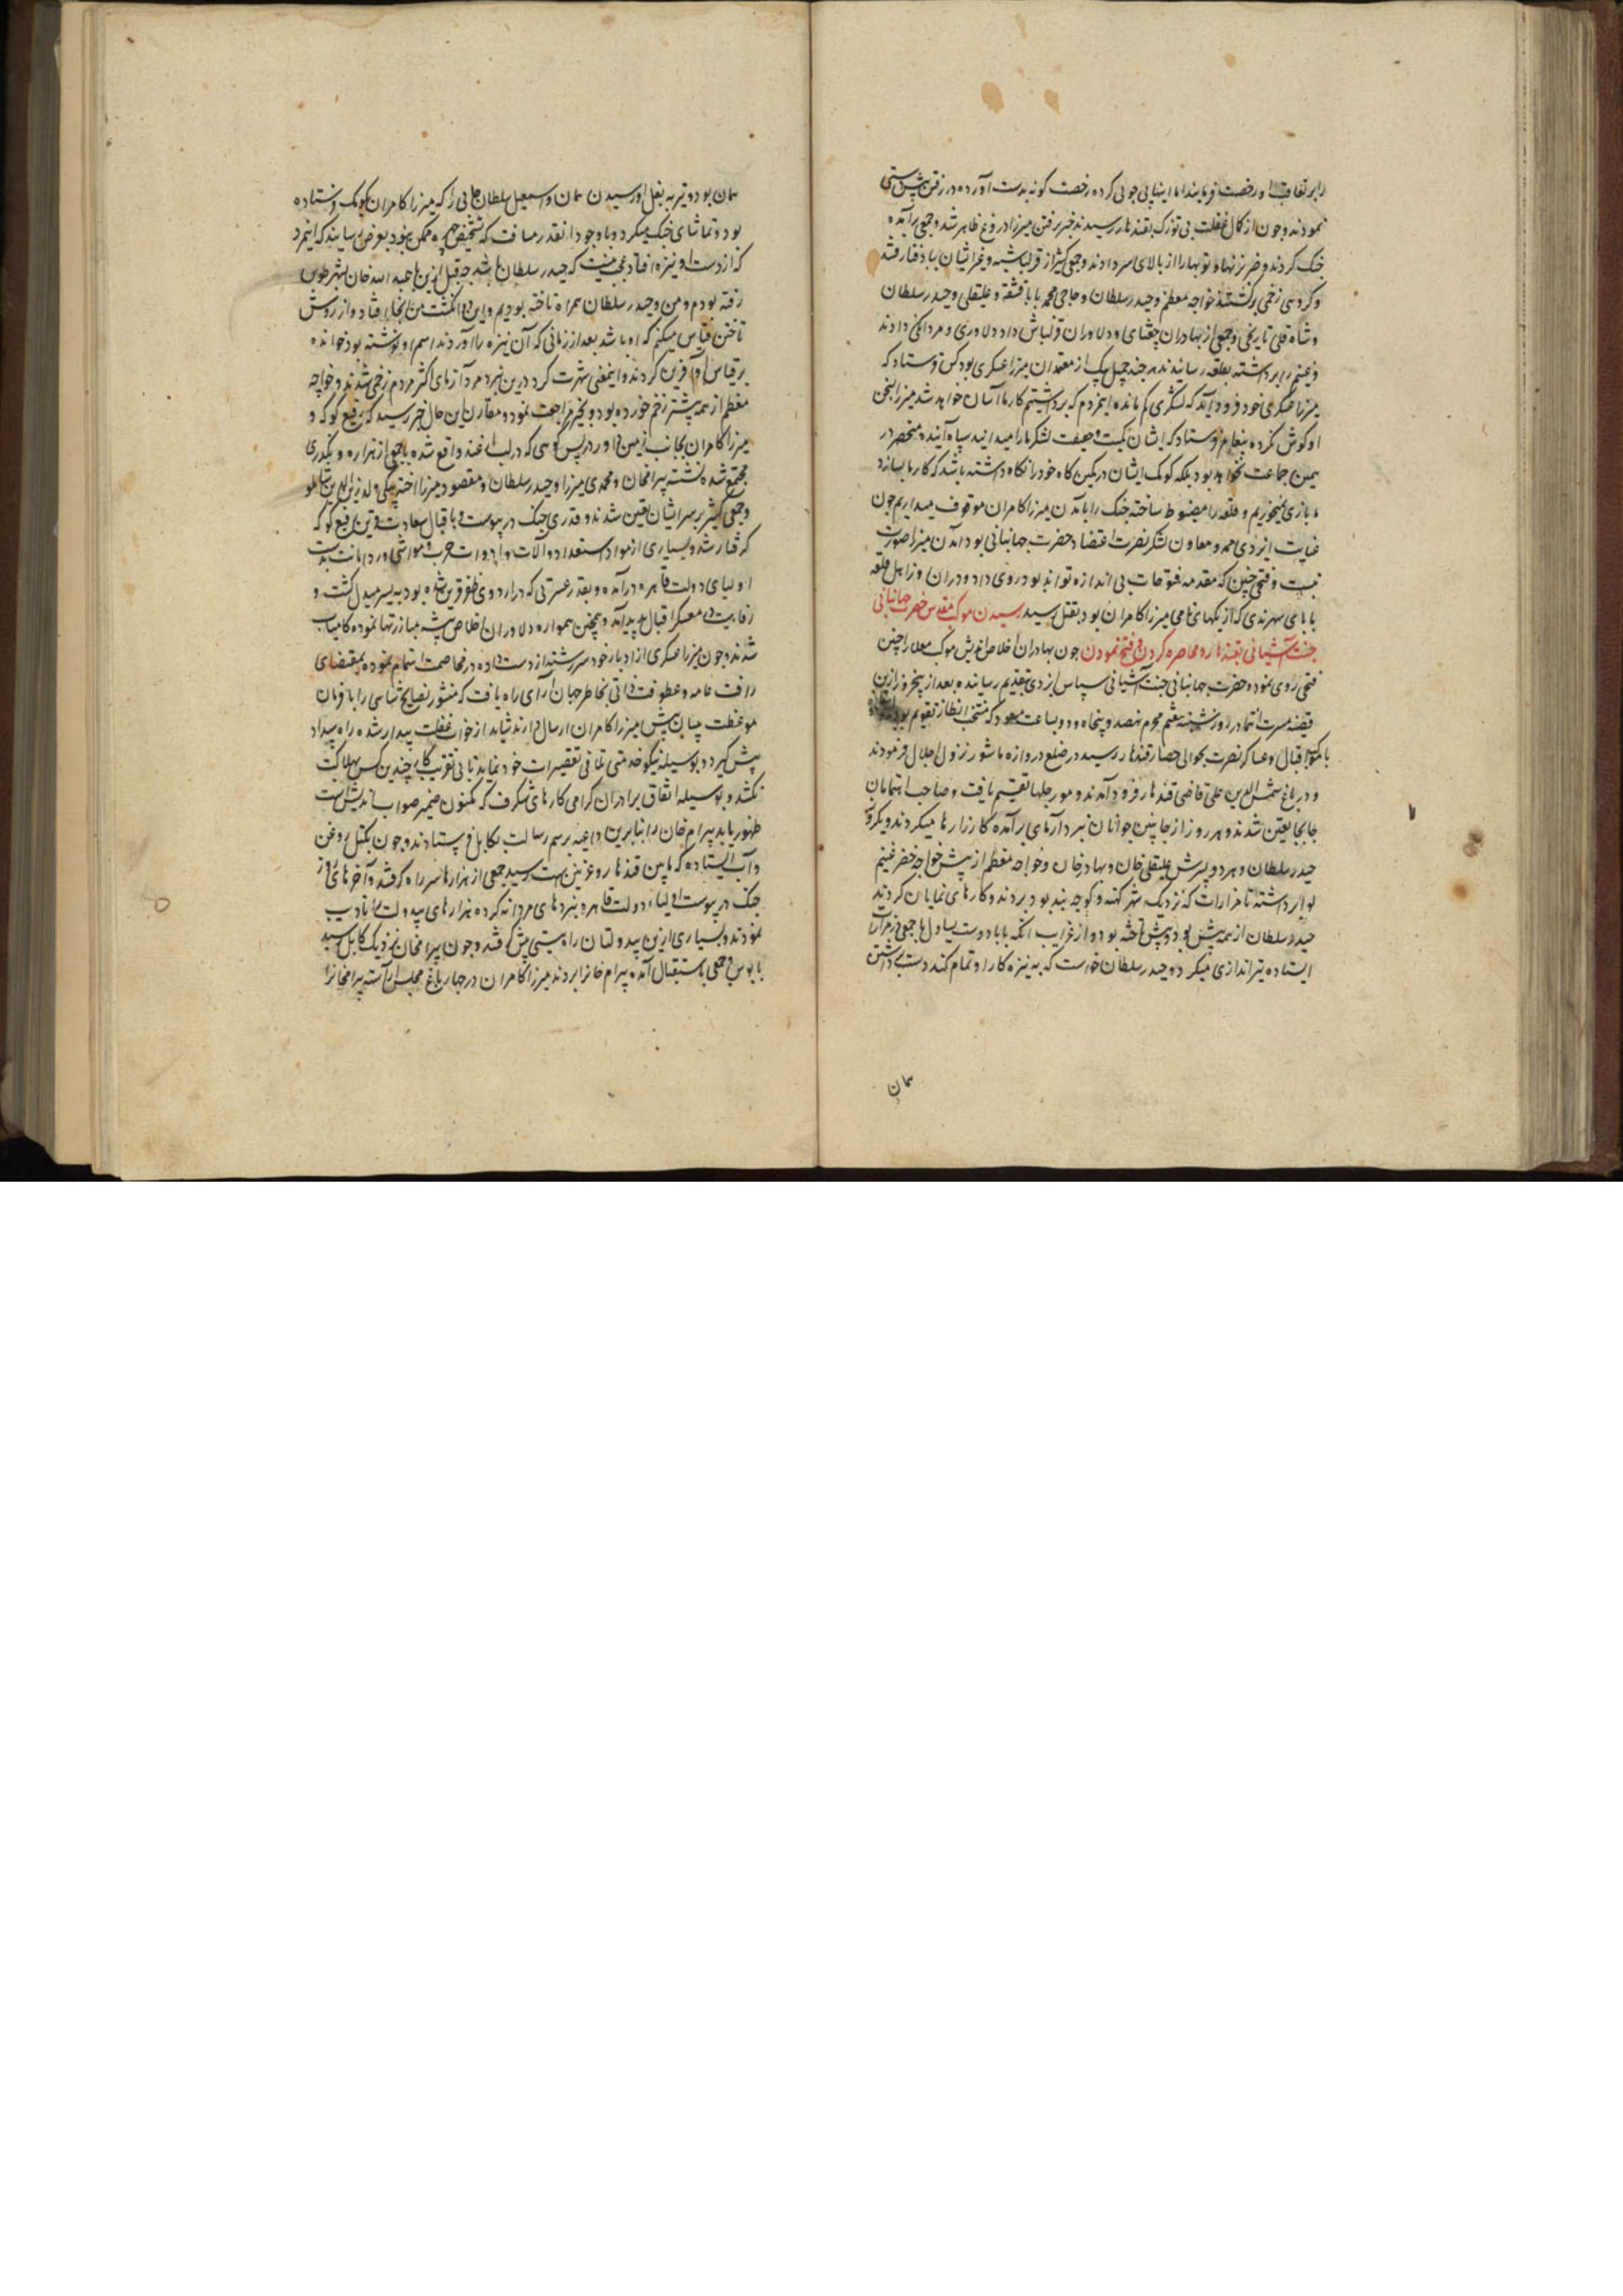 را بر تعاقب او رخصت فرمایند اما اینها پی جویی کرده رخصت گونه بدست آورده در رفتن پیش دستی
نمودند و چون از کمال غفلت بی توزک بقندهار رسیدند خبر رفتن میرزا دروغ ظاهر شد و جمعی برآمده
جنک کردند و ضربزنها و توپها را از بالای سر دادند و جمعی کثیر از قزلباشیه و غیر ایشان بباد فنا رفتند
و کروهی زخمی برکشتند خواجه معظم و حیدر سلطان و حاجی محمد بابا قشقه و علیقلی و حیدر سلطان
و شاه قلی نارنجی و جمعی از بهادران چغتای و دلاوران قزلباش داد دلاوری و مردانکی دادند
و غنیم را برداشته بقلعه رسانیدند هر چند جمیل بیک از معتمدان میرزا عسکری بود کس فرستاد که
میرزا عسکری خود فرود آید که لشکری کم مانده اینمردم که برداشتیم کار ما آسان خواهد شد میرزا بسخن
او کوش نکرده پیغام فرستاد که ایشان کمیت و کیفیت لشکر ما را میدانند سپاه آینده منحصر در
همین جماعت نخواهد بود بلکه کومک ایشان در کمین کاه خود را نکاه داشته باشد که کار ما بسازد
ما بازی نمیخوریم و قلعه را مضبوط ساخته جنک را با آمدن میرزا کامران موقوف میداریم چون
عنایت ایزدی ممد و معاون لشکر نصرت اعتضاد حضرت جهانبانی بود آمدن میرزا صورت
نبست و فتحی چنین که مقدمه فتوحات بی اندازه تواند بود روی داد و دران روز اهل قلعه
بابای سهرندی که از یکهای نامی میرزا کامران بود بقتل رسید رسیدن موکب مقدس حضرت جهانبانی
جنت آشیانی بقندهار و محاصره کردن و فتح نمودن چون بهادران اخلاص اندیش موکب معلی را چنین
فتحی روی نمود و حضرت جهانبانی جنت آشیانی سپاس ایزدی بتقدیم رسانیده بعد از پنجروز ازین
قضیه مسرت انتما در روز شنبه هفتم محرم نهصد و پنجاه و دو بساعت مسعود که منتخب انظار تقویم بود
با کوکبه اقبال و عساکر نصرت بحوالی حصار قندهار رسید در ضلع دروازه ماشور نزول اجلال فرمودند
و در باغ شمس الدین علی قاضی قندهار فرود آمدند و مورچلها تقسیم یافت و صاحب اهتمامان
جابجا تعین شدند و هر روز از جانبین جوانان نبرد آزمای برآمده کارزارها میکردند و یکروز
حیدر سلطان و هر دو پسرش علیقلی خان و بهادر خان و خواجه معظم از پیش خواجه خضر غنیم
را برداشته تا مزارات که نزدیک شهر کهنه و کوچه بند بود بردند و کارهای نمایان کردند
حیدر سلطان از همه پیش بود و پیش تاخته بود و از غرایب آنکه بابا دوست یساول با جمعی در مزارات
ایستاده تیراندازی میکرد و حیدر سلطان خواست که به نیزه کار او تمام کند دست برداشتن
همان
همان بود و تیر به بغل او رسیدن همان و اسمعیل سلطان جامی را که میرزا کامران بکومک فرستاده
بود و تماشای جنک میکرد و با وجود آنقدر مسافت که تشخیص چهره ممکن نبود بعرض رسانید که اینمرد
که از دست او نیزه افتاد عجبی نیست که حیدر سلطان باشد چه قبل ازین با عبید الله خان بشهر طوس
رفته بودم و من و حیدر سلطان همراه تاخته بودیم و این دو انکشت من آنجا افتاد و از روش
تاختن قیاس میکنم که او باشد بعد از زمانی که آن نیزه را آوردند اسم او نوشته بود خوانده
بر قیاس او آفرین کردند و اینمعنی شهرت کرد درین نبرد مرد آزمای اکثر مردم زخمی شدند و خواجه
معظم از همه بیشتر زخم خورده بود و بخیر مراجعت نمود و مقارن این حال خبر رسید که رفیع کوکه و
میرزا کامران بجانب زمین داور در پس کوهی که در لب ارغنداب واقع شده با جمعی از هزاره و نکدری
مجتمع شده نشسته بیرامخان و محمدی میرزا و حیدر سلطان و مقصود میرزا اخته بیکی ولد زین الدین شاملو
و جمعی کثیر بر سر ایشان تعین شدند و قدری جنک در پیوست و باقبال سعادت قرین رفیع کوکه
گرفتار شد و بسیاری از مواد استعداد و آلات و ادوات حرب و مواشی و ردامانت بدست
اولیای دولت قاهره درآمده و بقدر عسرتی که در اردوی ظفر قرین شده بود به یسر مبدل گشت و
رفاهیت در معسکر اقبال پدید آمد و همچنین همواره دلاوران اخلاص پیشه مبارزتها نموده کامیاب
شدند و چون میرزا عسکری از ادبار خود سررشته از دست داده در مخاصمت اهتمام نموده بمقتضای
رأفت عامه و عطوفت ذاتی بخاطر جهان آرای راه یافت که منشور نصایح تناسی را با فرمان
موعظت بیان پیش میرزا کامران ارسال دارند شاید از خواب غفلت بیدار شده راه سداد
پیش کیرد و بوسیله نیکو خدمتی تلافی تقصیرات خود نماید تا بی تقریب کارِ چندین کس بهلاکت
نکشد و بوسیله اتفاق برادران گرامی کارهای شگرف که مکنون ضمیر صواب اندیش است
ظهور یابد بیرام خان را بنابرین داعیه برسم رسالت بکابل فرستادند و چون بکتل روغن
و آب ایستاده که مابین قندهار و غزنین ست رسید جمعی از هزارها سر راه گرفتند و آخرهای روز
جنک در پیوست اولیاء دولت قاهره نبردهای مردانه کرده هزارهای بیدولت را تادیب
نمودند و بسیاری ازین بیدولتان راه نیستی پیش گرفتند و چون بیرامخان نزدیک کابل رسید
بابوس و جمعی باستقبال آمده بیرام خانرا بردند میرزا کامران در چهار باغ مجلس آراسته بیرامخانرا